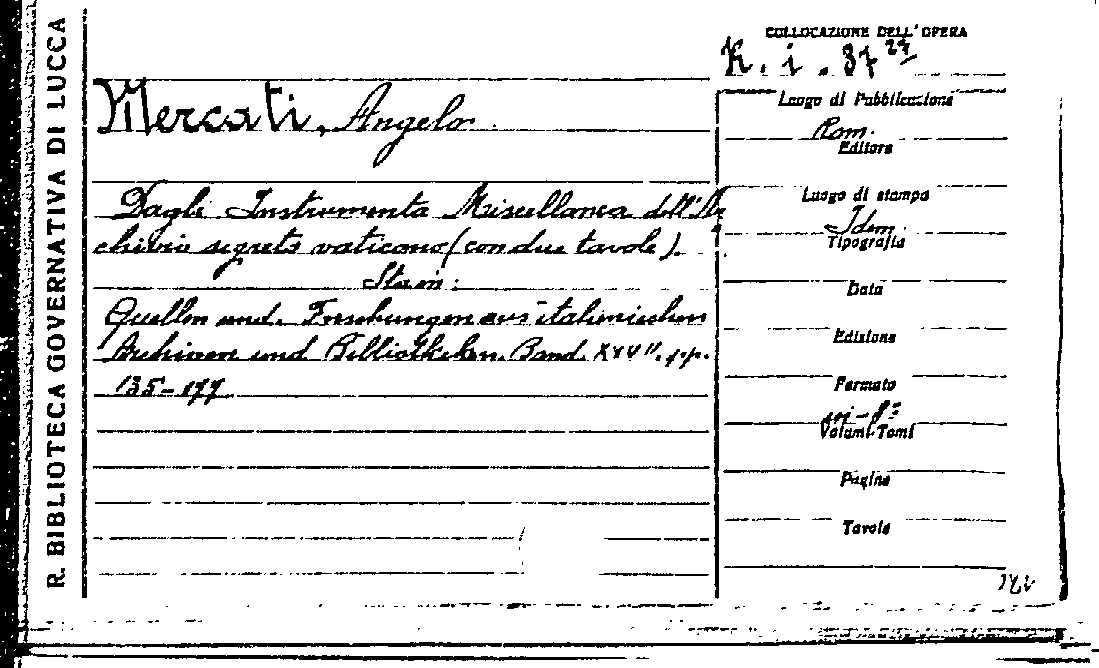 R. BIBLIOTECA GOVERNATIVA DI LUCCA
COLLOCAZIONE DELL'OPERA
K. i. 37
Mercati, Angelo.
Dagli Instrumenta Miscellanea dell'Ar
chivio segreto vaticano (con due tavole).
Sta in:
Quellen und Forschungen aus italienischen
Archiven und Bibliotheken. Band. pp.
135-177
Luogo di Pubblicazione
Rom.
Editore
Luogo di stampa
Idem.
Tipografia
Data
Edizione
Formato
in-8°
Volumi-Tomi
Pagine
Tavole